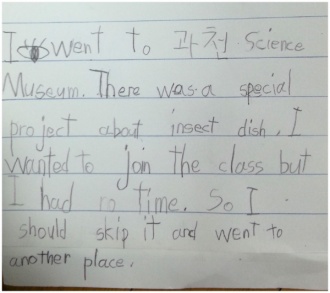 I went to 과천 Science
Museum. There was a special
project about insect dish. I
wanted to join the class but
I had no time. So I
should skip it and went to
another place.